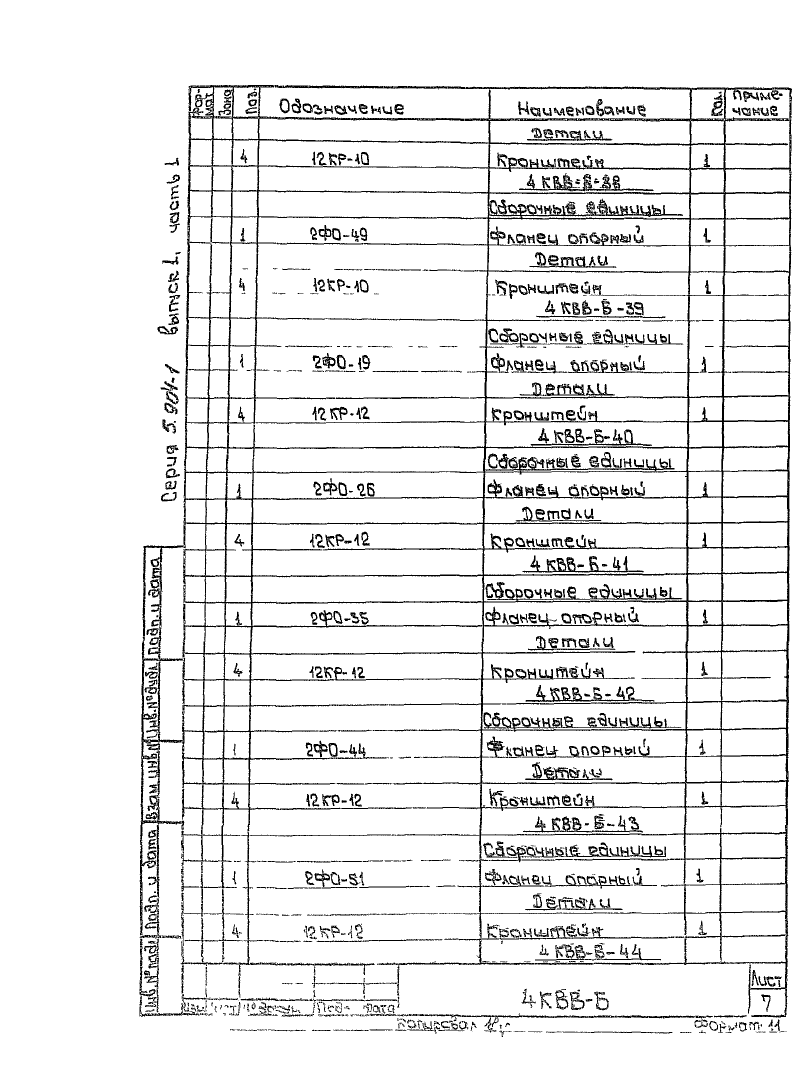 Формат Зона Поз. Обозначение Наименование Кол. Примечание
Детали
4 12КР-10 Кронштейн 1
4КВВ-Б-38
Сборочные единицы
1 2ФО-49 Фланец опорный 1
Детали
4 12КР-10 Кронштейн 1
4КВВ-Б-39
Сборочные единицы
1 2ФО-19 Фланец опорный 1
Детали
4 12КР-12 Кронштейн 1
4КВВ-Б-40
Сборочные единицы
1 2ФО-26 Фланец опорный 1
Детали
4 12КР-12 Кронштейн 1
4КВВ-Б-41
Сборочные единицы
1 2ФО-35 Фланец опорный 1
Детали
4 12КР-12 Кронштейн 1
4КВВ-Б-42
Сборочные единицы
1 2ФО-44 Фланец опорный 1
Детали
4 12КР-12 Кронштейн 1
4КВВ-Б-43
Сборочные единицы
1 2ФО-51 Фланец опорный 1
Детали
4 12КР-12 Кронштейн 1
4КВВ-Б-44
Серия 5.904-1 выпуск 1, часть 1
Подп. и дата
Инв.№дубл.
Взам инв.№
Подп. и дата
Инв.№подл.
Изм Лист № докум. Подп. Дата
4КВВ-Б
Лист
7
Копировал
Формат 11